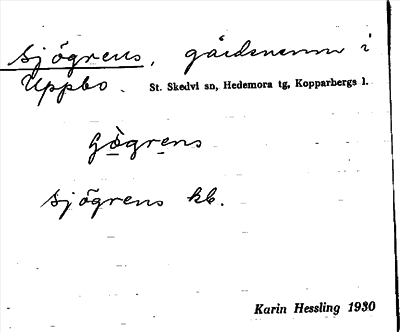 Sjögrens, gårdsnamn i
Uppbo. St. Skedvi sn, Hedemora tg, Kopparbergs l.
sjögrens kb.
Karin Hessling 1930